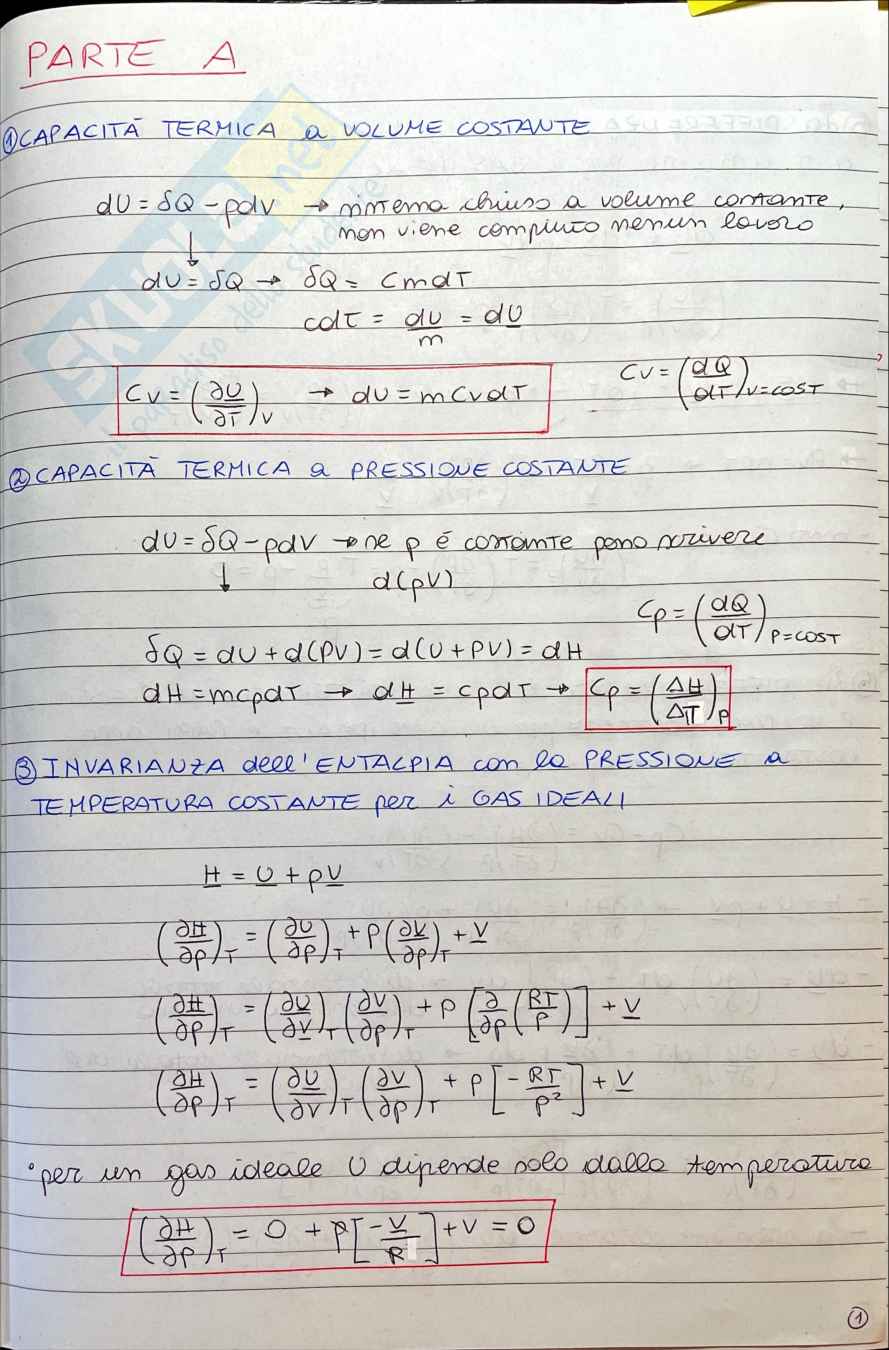 PARTE A
① CAPACITÀ TERMICA a VOLUME COSTANTE
dU = δQ - pdV → sistema chiuso a volume costante,
non viene compiuto nessun lavoro
↓
dU = δQ → δQ = cmdT
cdT = dU/m = dU̲
Cv = (∂U̲/∂T)_V → dU = mCvdT
Cv = (dQ/dT)_V=COST
② CAPACITÀ TERMICA a PRESSIONE COSTANTE
dU = δQ - pdV → se p é costante posso scrivere
↓ d(pV)
Cp = (dQ/dT)_P=COST
δQ = dU + d(PV) = d(U + PV) = dH
dH = mcpdT → dH̲ = cpdT → Cp = (ΔH̲/ΔT)_P
③ INVARIANZA dell'ENTALPIA con la PRESSIONE a
TEMPERATURA COSTANTE per i GAS IDEALI
H̲ = U̲ + pV̲
(∂H̲/∂p)_T = (∂U̲/∂p)_T + p(∂V̲/∂p)_T + V̲
(∂H̲/∂p)_T = (∂U̲/∂V̲)_T (∂V̲/∂p)_T + p[∂/∂p(RT/p)] + V̲
(∂H̲/∂p)_T = (∂U̲/∂V̲)_T (∂V̲/∂p)_T + p[-RT/p²] + V̲
• per un gas ideale U dipende solo dalla temperatura
(∂H̲/∂p)_T = 0 + p[-V̲/p] + V = 0
①
SKUOLA.net
il paradiso dello studente